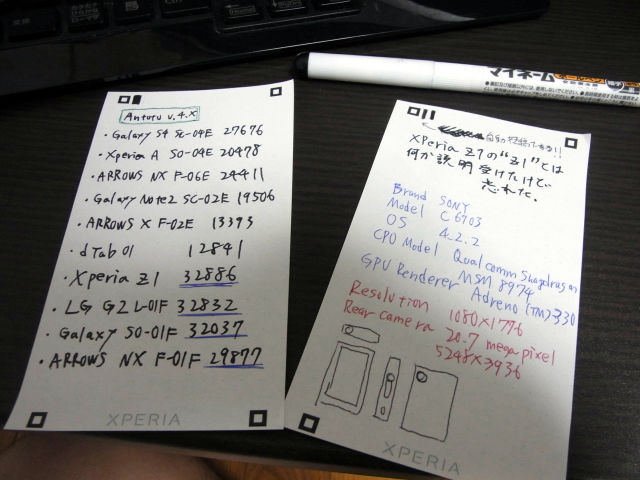 Antutu v.4.X
・Galaxy S4 SC-04E 27676
・Xperia A SO-04E 20478
・ARROWS NX F-06E 24411
・Galaxy Note2 SC-02E 19506
・ARROWS X F-02E 13393
・dTab 01 12841
・Xperia Z1 32886
・LG G2 L-01F 32832
・Galaxy SO-01F 32037
・ARROWS NX F-01F 29877
XPERIA
Xperia Z1の"Z1"とは
何か説明受けたけど
忘れた.
Brand SONY
Model C6903
OS 4.2.2
CPU Model Qualcomm Snapdragon
MSM 8974
GPU Renderer Adreno (TM) 330
Resolution 1080×1776
Rear camera 20.7 megapixel
5248×3936
XPERIA
マイネーム